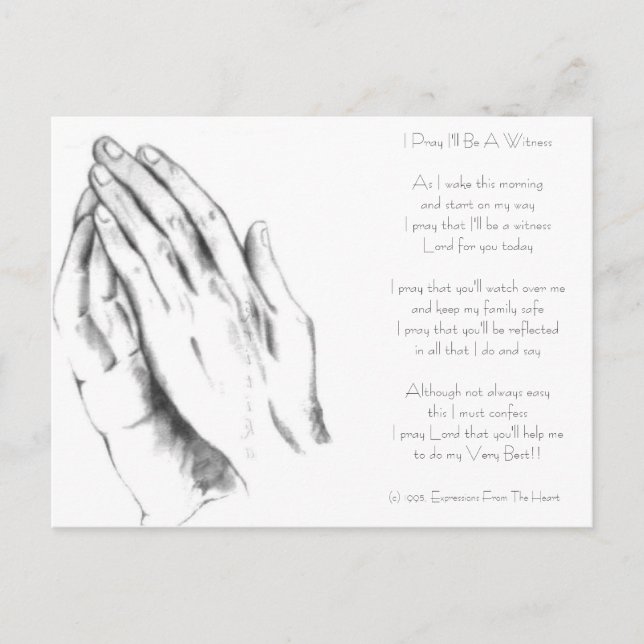 I Pray I'll Be A Witness
As I wake this morning
and start on my way
I pray that I'll be a witness
Lord for you today
I pray that you'll watch over me
and keep my family safe
I pray that you'll be reflected
in all that I do and say
Although not always easy
this I must confess
I pray Lord that you'll help me
to do my Very Best!!
(c) 1995, Expressions From The Heart